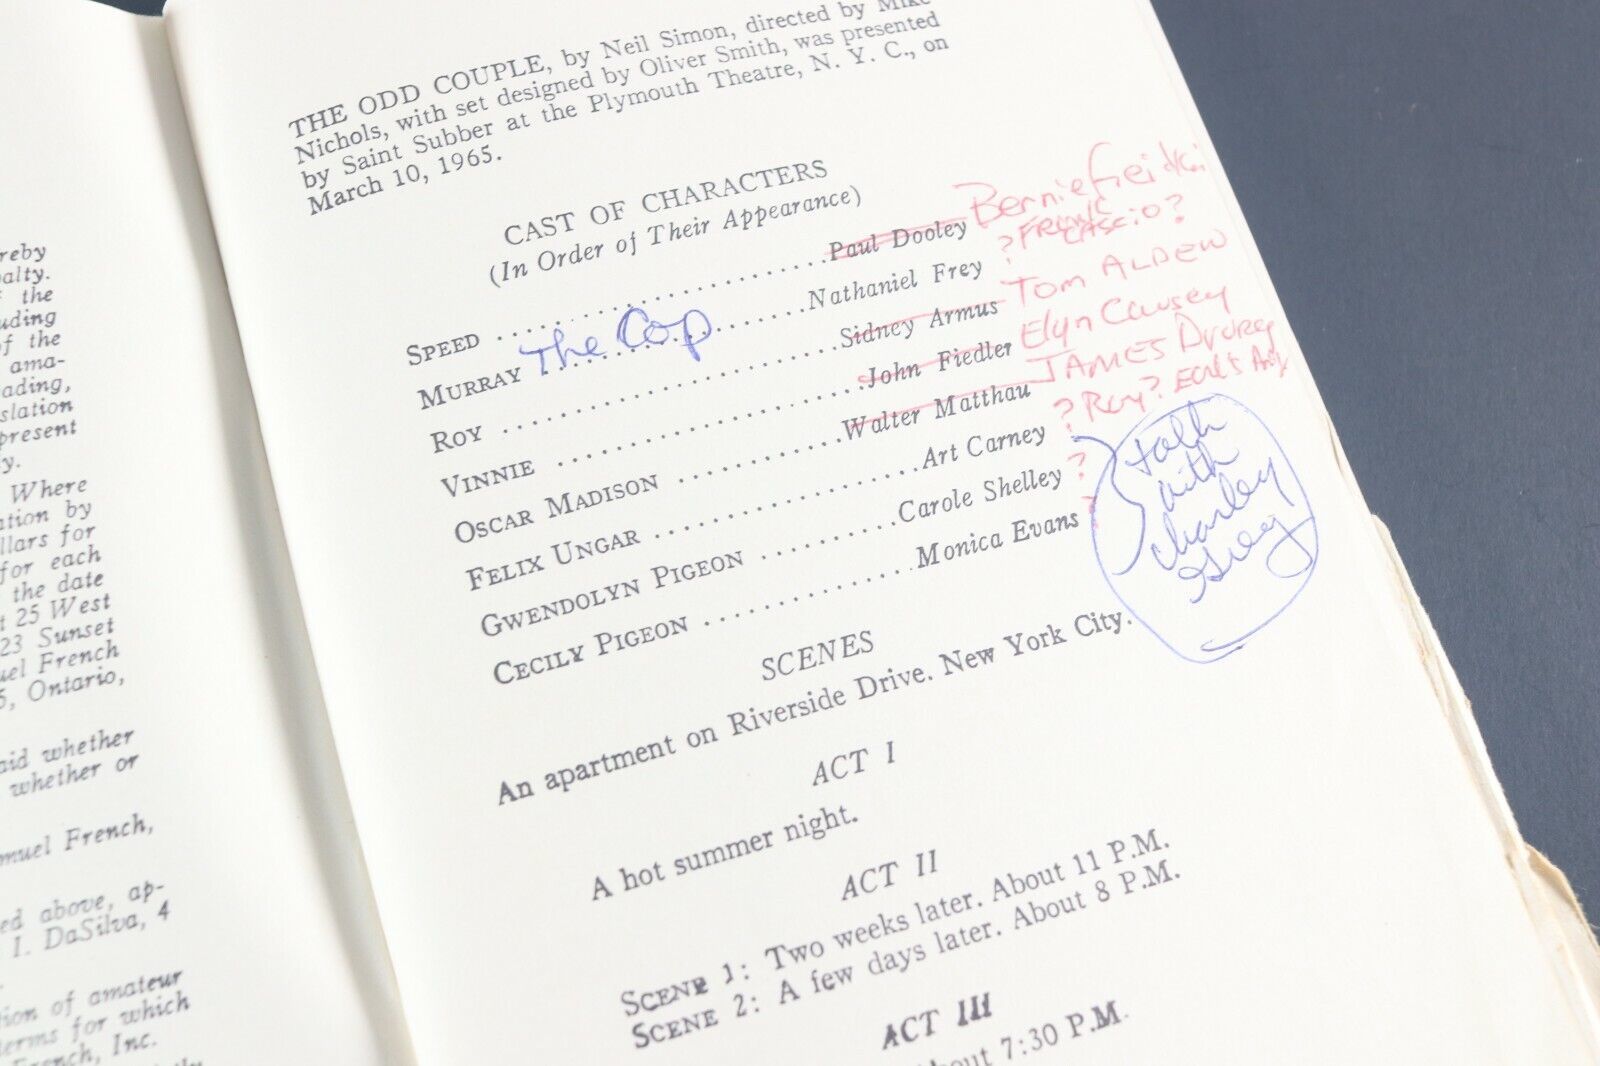 ereby
alty.
f the
uding
f the
ama-
eading,
slation
present
y.
Where
ation by
llars for
for each
the date
t 25 West
23 Sunset
uel French
5, Ontario,
aid whether
whether or
muel French,
ed above, ap-
I. DaSilva, 4
tion of amateur
terms for which
French, Inc.
THE ODD COUPLE, by Neil Simon, directed by Mike
Nichols, with set designed by Oliver Smith, was presented
by Saint Subber at the Plymouth Theatre, N. Y. C., on
March 10, 1965.
CAST OF CHARACTERS
(In Order of Their Appearance)
SPEED ........................ Paul Dooley Bernie
MURRAY The Cop ............ Nathaniel Frey ? Frank Cascio?
ROY ........................ Sidney Armus Tom ALDEW
VINNIE ........................ John Fiedler Elyn Causey
OSCAR MADISON ............ Walter Matthau JAMES Drury
FELIX UNGAR .................. Art Carney ? Roy? Earl's
GWENDOLYN PIGEON .......... Carole Shelley ?
CECILY PIGEON ............... Monica Evans ?
talk
with
charley
Grey
SCENES
An apartment on Riverside Drive. New York City.
ACT I
A hot summer night.
ACT II
SCENE 1: Two weeks later. About 11 P.M.
SCENE 2: A few days later. About 8 P.M.
ACT III
bout 7:30 P.M.